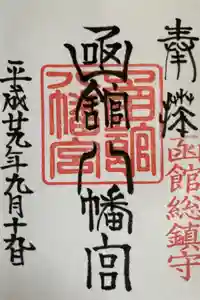 奉拜
函館総鎮守
函館八幡宮
函館
八幡宮
平成廿九年九月十九日